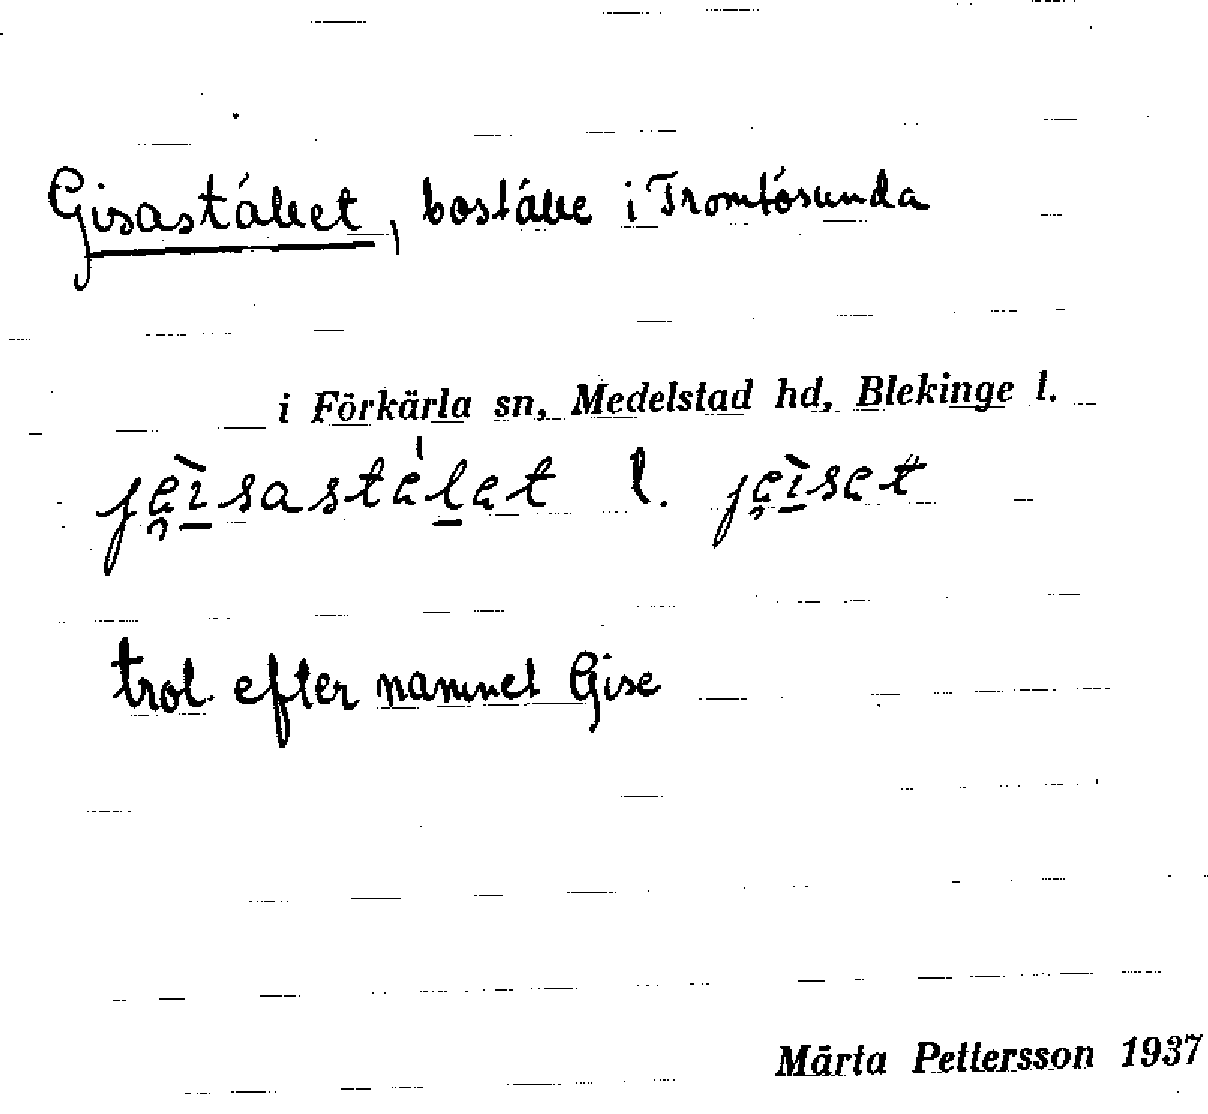 Gisastället, boställe i Tromtösunda
i Förkärla sn, Medelstad hd, Blekinge l.
l.
trol efter namnet Gise
Märta Pettersson 1937